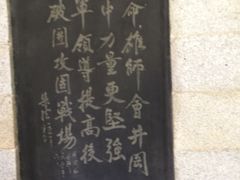 命雄師會井岡
中力量更堅強
軍領導提高後
破圍攻固戰場
朱德